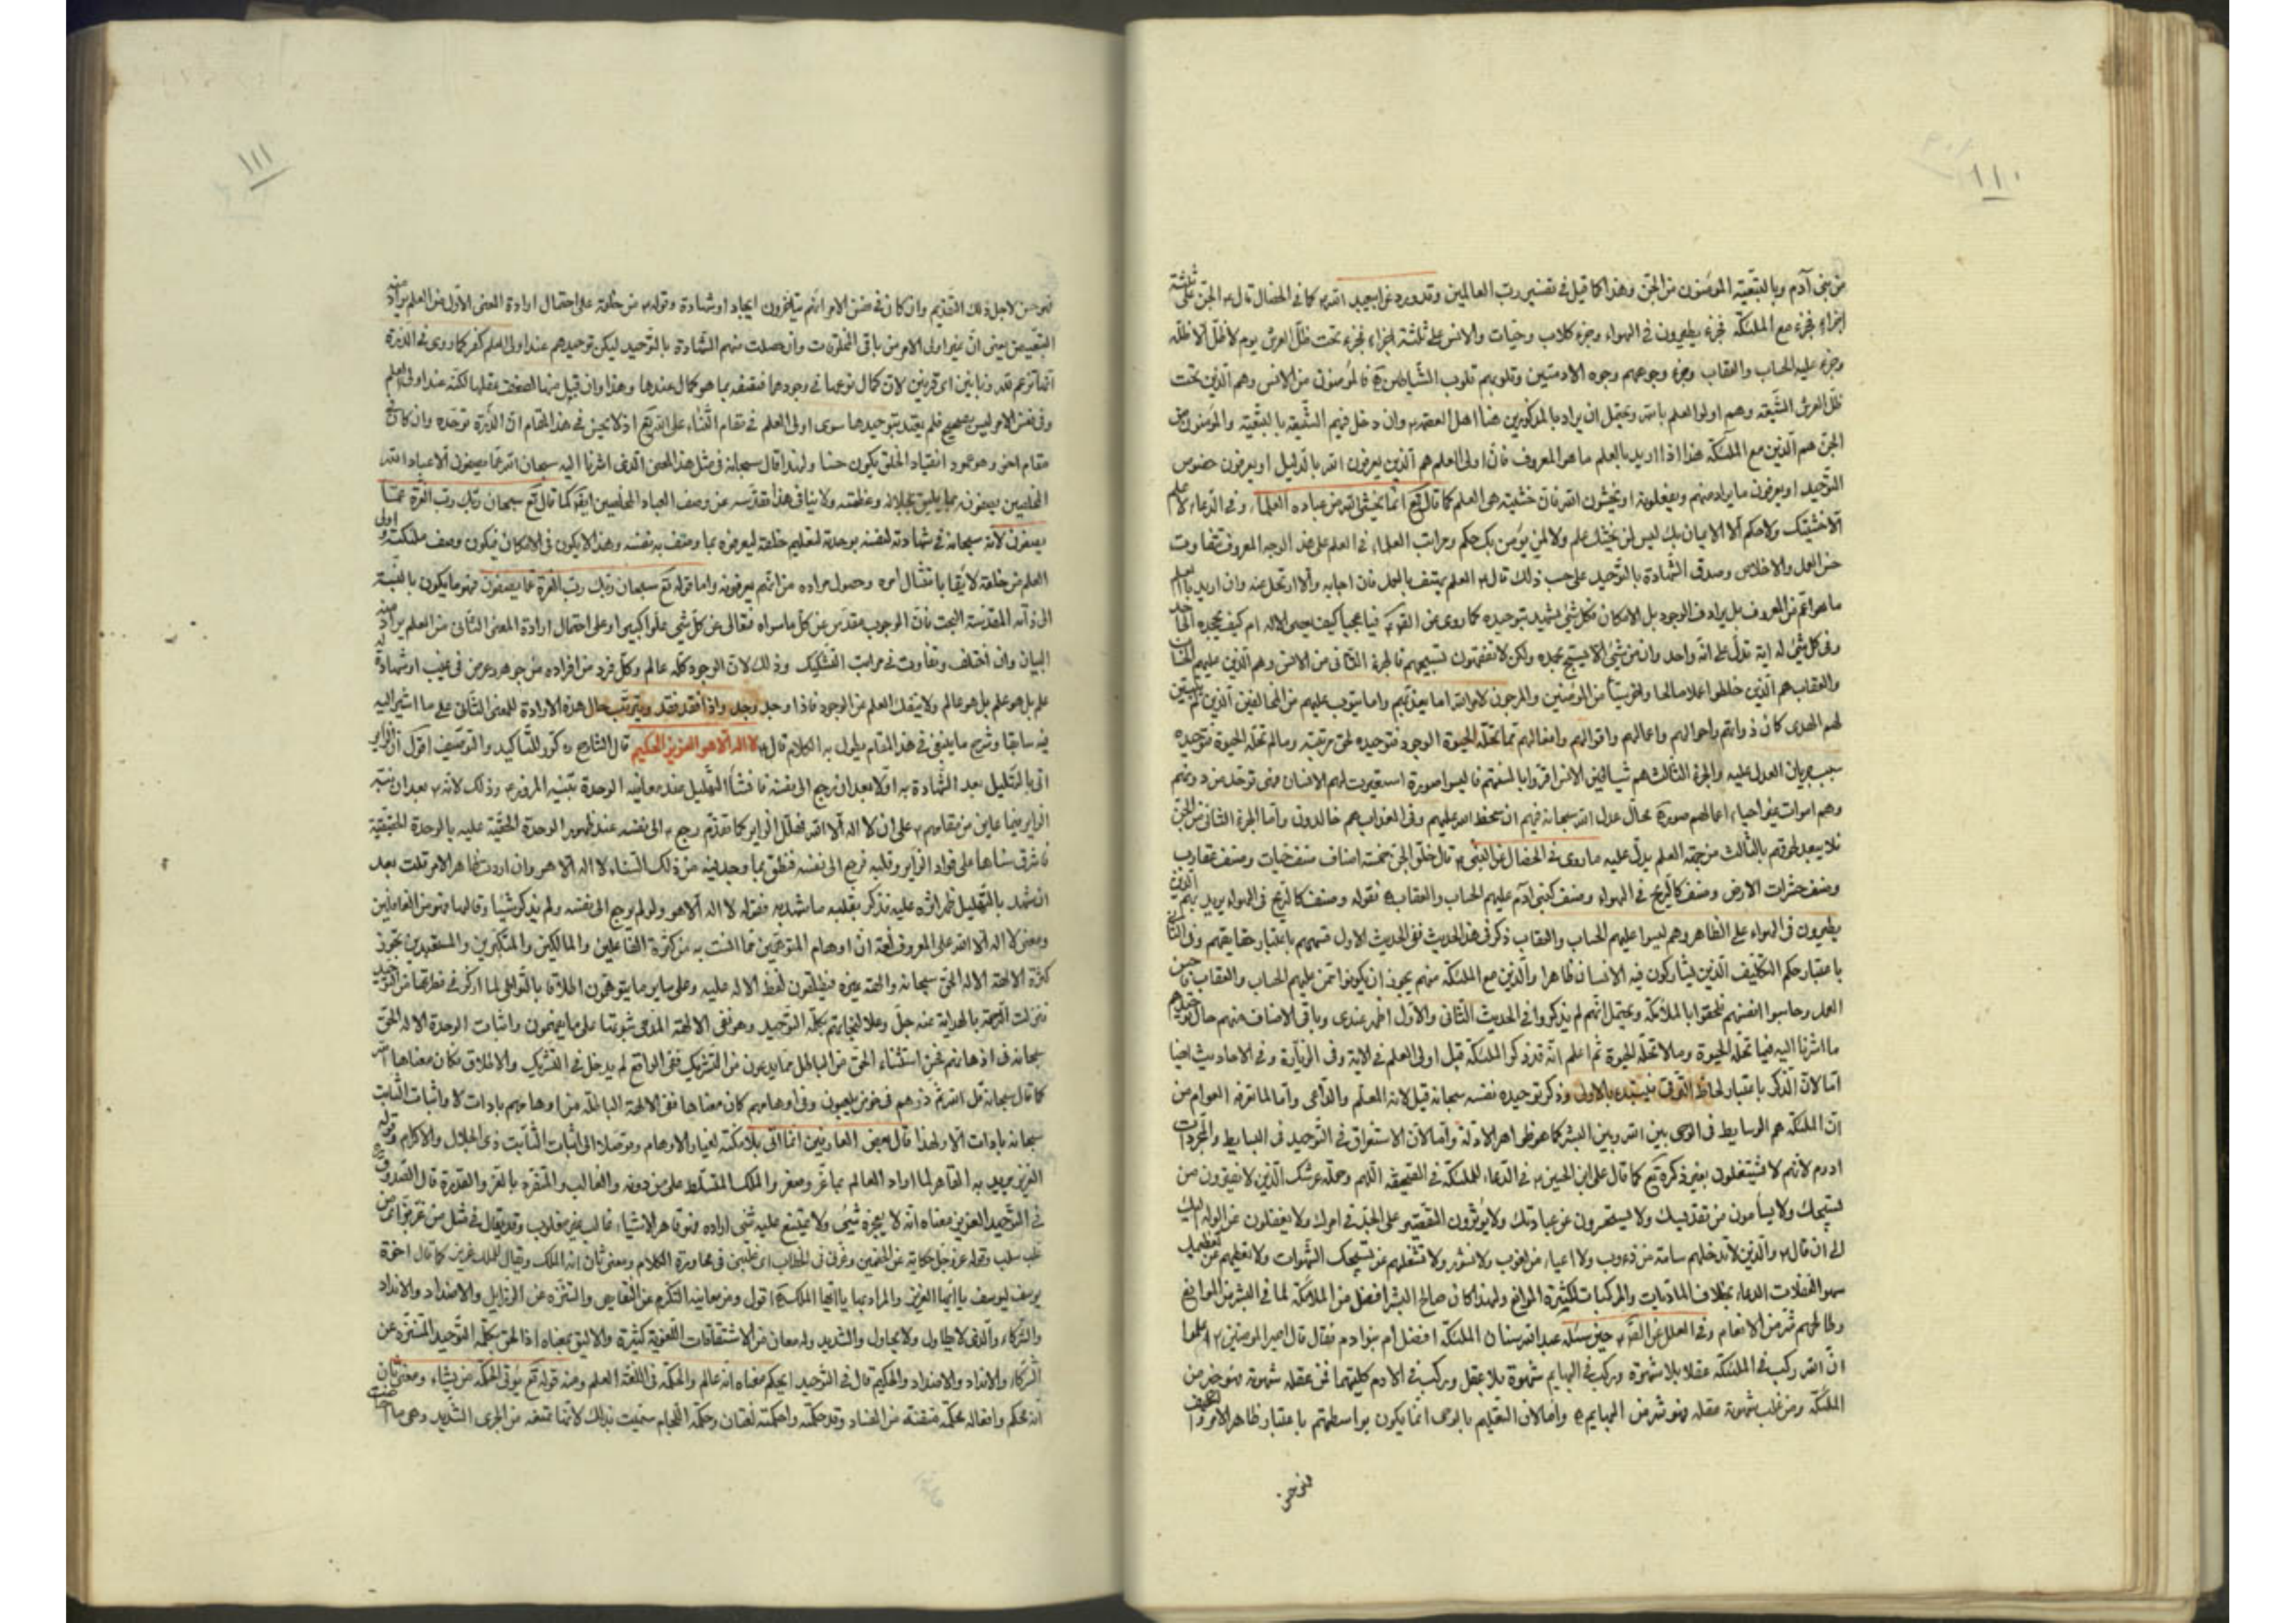 ١١٠
من بنى آدم وبالتبعيّة المؤمنون من الجنّ وهذا كما قيل فى تفسير ربّ العالمين وقد ورد عن ابيعبد الله ع كما فى الخصال قال ع الجنّ على ثلثة
اجزاء فجزء مع الملئكة فجزء يطيرون فى الهواء وجزء كلاب وحيّات والانس على ثلثة اجزاء فجزء تحت ظلّ العرش يوم لا ظلّ الّا ظلّه
وجزء عليه الحساب والعقاب وجزء وجوههم وجوه الادميّين وقلوبهم قلوب الشّياطين فالمؤمنون من الانس وهم الّذين تحت
ظلّ العرش الشّيعة وهم اولوا العلم بالله ويحتمل ان يراد بالمذكورين هنا اهل العصمة ع وان دخل فيهم الشّيعة بالتبعيّة والمؤمنون من
الجنّ هم الّذين مع الملئكة هذا اذا اريد بالعلم ما هو المعروف فانّ اولى العلم هم الّذين يعرفون الله بالدّليل او يعرفون خصوص
التّوحيد او يعرفون ما يراد منهم ويفعلونه او يخشون الله فانّ خشيته هى العلم كما قال تع انّما يخشى الله من عباده العلماء وفى الدعاء لا علم
الّا خشيتك ولا حكم الّا الايمان بك ليس لمن لم يخشك علم ولا لمن لم يؤمن بك حكم ومراتب العلماء فى العلم على هذ الوجه المعروف تتفاوت
حسن العمل والاخلاص وصدق الشّهادة بالتّوحيد على حسب ذلك قال ع العلم يهتف بالعمل فان اجابه والّا ارتحل عنه وان اريد بالعلم
ما هو اعمّ من المعروف بل يرادف الوجود بل الامكان فكلّ شئ يشهد بتوحيده كما روى عن القوم فيا عجبا كيف يعصى الاله ام كيف يجحده الجاحد
وفى كلّ شئ له اية تدلّ على انّه واحد وان من شئ الّا يسبّح بحمده ولكن لا تفقهون تسبيحهم فالجزء الثّانى من الانس وهم الّذين عليهم الحساب
والعقاب هم الّذين خلطوا عملا صالحا واخر سيّئا من المؤمنين والمرجون لامر الله امّا يعذّبهم وامّا يتوب عليهم من المخالفين الّذين لم يتبيّن
لهم الهدى كان ذواتهم واحوالهم واعمالهم واقوالهم وافعالهم ممّا تحلّه الحيوة الوجود فتوحيده لحق مرتبته وما لم تحلّه الحيوة فتوحيده
سبب جريان العدل عليه والجزء الثّالث هم شياطين الانس
وهم اموات غير احياء اعمالهم صورة بحال عدل الله سبحانه فيهم ان سخط الله عليهم وفى العذاب هم خالدون وامّا الجزء الثانى من الجنّ
فلا يبعد لحوقهم بالثّالث من جهة العلم يدلّ عليه ما روى فى الخصال عن النبى ص قال خلق الجنّ خمسة اصناف صنف حيّات وصنف عقارب
وصنف حشرات الارض وصنف كالرّيح فى الهواء وصنف كبنى آدم عليهم الحساب والعقاب فقوله وصنف كالرّيح فى الهواء يريد بهم الّذين
يطيرون فى الهواء على الظاهر وهم ليسوا عليهم الحساب والعقاب ذكر فى هذا الحديث ففى الحديث الاول قسمهم باعتبار حقايقهم وفى الثّانى
باعتبار حكم التكليف الّذين يشاركون فيه الانسان ظاهرا والّذين مع الملئكة منهم يجوز ان يكونوا ممّن عليهم الحساب والعقاب
العمل وحاسبوا انفسهم فلحقوا بالملائكة ويحتمل انّهم لم يذكروا فى الحديث الثّانى والاوّل اظهر عندى وباقى الاصناف منهم حال
ما اشرنا اليه فيما تحلّه الحيوة وما لا تحلّه الحيوة ثم اعلم انّه قد ذكر الملئكة قبل اولى العلم فى الاية وفى الزّيارة وفى الاحاديث ايضا
امّا لانّ الذّكر باعتبار لحاظ التّرقّى فيبتدء بالاولى وذكر توحيده نفسه سبحانه قبل لانّه المعلّم والدّاعى وامّا لما تعرفه العوام من
انّ الملئكة هم الوسايط فى الوحى بين الله وبين البشر كما هو ظواهر الادلّة وامّا لانّ الاستغراق فى التّوحيد فى البسايط والمجرّدات
ادوم لانّهم لا يشتغلون بغير ذكره تع كما قال على ابن الحسين ع فى الدعاء للملئكة فى الصّحيفة اللّهم وحملة عرشك الّذين لا يفترون من
تسبيحك ولا يسأمون من تقديسك ولا يستحسرون عن عبادتك ولا يؤثرون التّقصير على الجدّ فى امرك ولا يغفلون عن الوله اليك
الى ان قال ع والّذين لا تدخلهم سأمة من دءوب ولا اعياء من لغوب ولا فتور ولا تشغلهم عن تسبيحك الشّهوات ولا يقطعهم عن تعظيمك
سهو الغفلات الدعاء بخلاف المادّيات والمركّبات لكثيرة الموانع ولهذا كان صالح البشر افضل من الملائكة لما فى البشر من الموانع
وطالحهم شرّ من الانعام وفى العلل عن الصّ ع حين سئله عبد الله بن سنان الملئكة افضل ام بنو ادم فقال قال امير المؤمنين ع
انّ الله ركب فى الملئكة عقلا بلا شهوة وركب فى البهايم شهوة بلا عقل وركب فى بنى ادم كليتهما فمن عقله شهوته فهو خير من
الملئكة ومن غلب شهوته عقله فهو شر من البهايم وامّا لانّ التعليم بالوحى انّما يكون بواسطتهم باعتبار ظاهر الامر
١١١
فهو حسن لاجل ذلك التّقديم وان كان فى نفس الامر انّهم يتأخّرون ايجادا وشهادة وقوله ع من خلقه على احتمال ارادة المعنى الاوّل من العلم يراد منه
التبعيض يعنى انّ غير اولى الامر من باقى المخلوقات وان حصلت منهم الشّهادة بالتّوحيد ليكن توحيدهم عند اولى العلم كفر كما روى فى الذرّة
انّها تزعم انّ لله زبانيتين اى قرنين لانّ كمال نوعها فى وجودهما فتصفه بما هو كمال عندها وهذا وان قبل منها لضعف عقلها لكنّه عند اولى العلم
وفى نفس الامر ليس بصحيح فلم يعتد بتوحيدها سوى اولى العلم فى مقام الثّناء على الله تع اذ لا يحسن فى هذا المقام انّ الذّرة توحّده وان كان فى
مقام اخر وهو عموم انقياد الخلق يكون حسنا ولهذا قال سبحانه فى مثل هذا المعنى الّذى اشرنا اليه سبحان الله عمّا يصفون الّا عباد الله
المخلصين يصفونه بما يليق بجلاله وعظمته ولا ينافى هذا تقدّسه عن وصف العباد المخلصين ايضا كما قال تع سبحان ربّك ربّ العزّة عمّا
يصفون لانّه سبحانه فى شهادته لنفسه بوحدته لتعليم خلقه ليعرفوه بما وصف به نفسه وهذا لا يكون فى الامكان فيكون وصف ملئكته واولى
العلم من خلقه لايقا بامتثال امره وحصول مراده من انّهم يعرفونه وامّا قوله تع سبحان ربّك ربّ العزّة عمّا يصفون فهو ما يكون بالنّسبة
الى ذاته المقدّسة البحت فانّ الوجوب مقدّس عن كلّ ما سواه فتعالى عن كلّ شئ علوّا كبيرا وعلى احتمال ارادة المعنى الثّانى من العلم يراد منه
البيان وان اختلف وتفاوت فى مراتب التشكيك وذلك لانّ الوجود كلّه عالم وكلّ فرد من افراده من جوهر وعرض فى غيب او شهادة له
علم بل هو علم بل هو عالم ولا ينفك العلم من الوجود فاذا وجد وجد واذا فقد فقد ويترتّب حال هذه الارادة للمعنى الثّانى على ما اشير اليه
فيه سابقا وشرح ما ينبغى فى هذا المقام يطول به الكلام قال ع لا اله الّا هو العزيز الحكيم قال الشّارح ره كرّر للتّأكيد والتّوصيف اقول انّ الزاير
اتى بالتّهليل بعد الشّهادة به اوّلا بعد ان رجع الى نفسه
الزاير فيما عاين من مقامهم ع على ان لا اله الّا الله فهلّل الزاير كما تقدّم رجع الى نفسه عند ظهور الوحدة الحقّية عليه بالوحدة الحقيقيّة
فاشرق سناها على فؤاد الزاير وقلبه فرجع الى نفسه فنطق بما وجد فيه من ذلك السّناء لا اله الّا هو وان اردت ظاهر الامر قلت بعد
ان شهد بالتّهليل ظهر اثره عليه فذكر بقلبه ما شهد به فقوله لا اله الّا هو ولو لم يرجع الى نفسه ولم يذكر شيئا وقالها فهو من الغافلين
ومعنى لا اله الّا الله على المعروف لغة انّ اوهام المتوهّمين لما انست به من كثرة الفاعلين والمالكين والمتكبّرين والمستعبدين تجوّز
كثرة الالهة الاله الحقّ سبحانه والهة غيره فيطلقون لفظ الاله عليه وعلى ساير ما يتوهّمون اطلاقا بالتّواطى لما اركز فى فطرتها من التّوحيد
فنزلت الرّحمة بالهداية منه جلّ وعلا لنجاتهم بكلمة التوحيد وهو نفى الالهة المدّعى ثبوتها على ما يزعمون واثبات الوحدة الاله الحقّ
سبحانه فى اذهانهم فمن استثناء الحقّ من الباطل ممّا يدعون من التّشريك ففى الواقع لم يدخل فى التّشريك والاطلاق فكان معناها
كما قال سبحانه قل الله ثمّ ذرهم فى خوضهم يلعبون وفى اوهامهم كان معناها نفى الالهة الباطلة من اوهامهم باداة لا واثبات الثّابت
سبحانه باداة الّا ولهذا قال بعض العارفين انّما اتى بلا مكنسة لغبار الاوهام وتوصّلا الى اثبات الثّابت ذى الجلال والاكرام وقوله
العزيز يريد به القاهر لما اراد العالم بما غبر ومن غبر والملك المتسلّط على من دونه والغالب والمتفرّد بالعزّ والقدرة قال الصّدوق ره
فى التّوحيد العزيز معناه انّه لا يعجزه شئ ولا يمتنع عليه شئ اراده فهو قاهر الاشياء غالب غير مغلوب وقد يقال فى مثل من عزّ بزّ اى من
غلب سلب وقوله عزّ وجل حكاية عن الخصمين وعزّنى فى الخطاب اى غلبنى فى محاورة الكلام ومعنى ثان انّه الملك ويقال للملك عزيز كما قال اخوة
يوسف ليوسف يا ايّها العزيز والمراد به يا ايّها الملك اقول ومن معانيه التّكرّم عن النّقايص والتّنزّه عن الرذايل والاضداد والانداد
والشّركاء والّذى لا يطاول ولا يحاول والشّديد وله معان من الاشتقاقات اللّغوية كثيرة والاليق بمعناه اذا لحق بكلمة التّوحيد المتنزّه عن
الشّركاء والانداد والاضداد والحكيم قال فى التّوحيد الحكيم معناه انّه عالم والحكمة فى اللّغة العلم ومنه قوله تع يؤتى الحكمة من يشاء ومعنى ثان
انّه محكم وافعاله محكمة متقنة من الفساد وقد حكمته واحكمته لغتان وحكمة اللّجام سمّيت بذلك لانّها تمنعه من الجرى الشّديد وهى ما احاطت